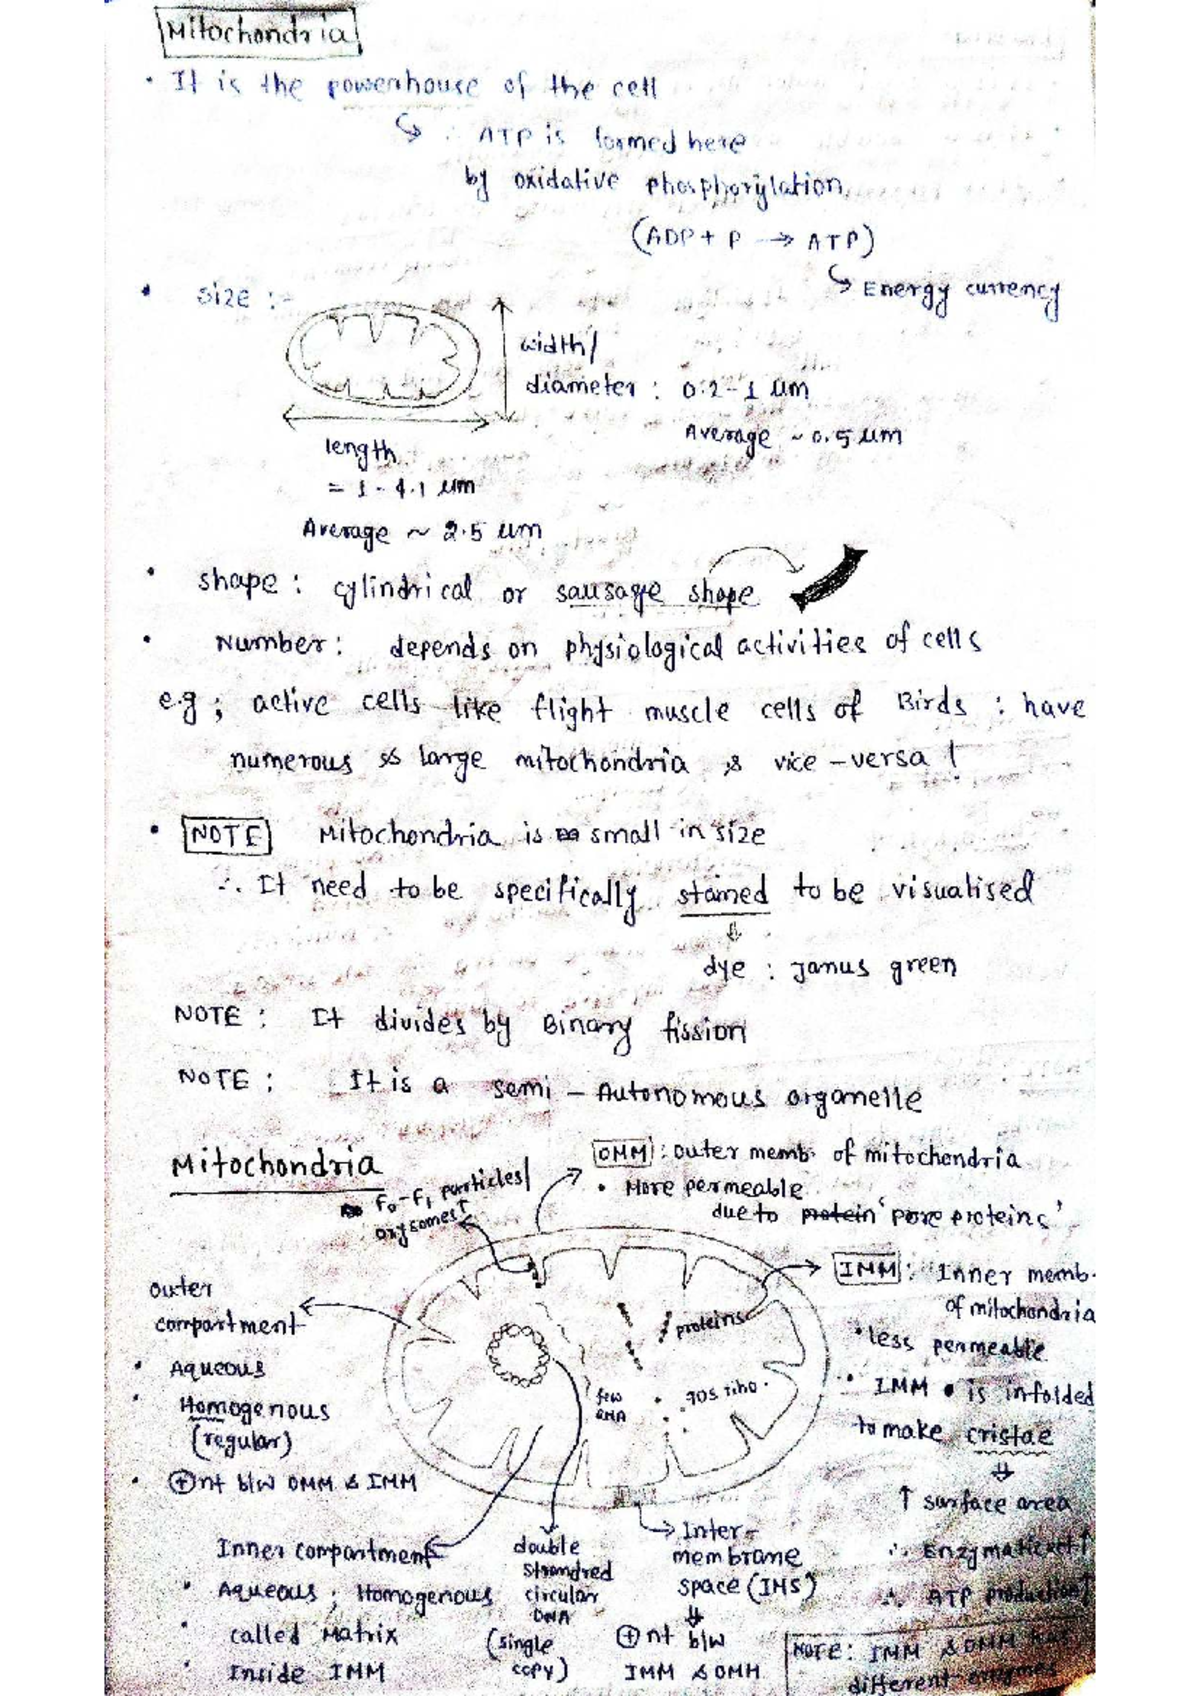 Mitochondria
• It is the powerhouse of the cell
∴ ATP is formed here
by oxidative phosphorylation
(ADP + P → ATP)
Energy currency
• Size :-
width/
diameter : 0.2 - 1 µm
Average ~ 0.5 µm
length
= 1 - 4.1 µm
Average ~ 2.5 µm
• shape : cylindrical or sausage shape
• Number : depends on physiological activities of cells
e.g ; active cells like flight muscle cells of Birds : have
numerous & large mitochondria & vice-versa !
• NOTE Mitochondria is small in size
∴ It need to be specifically stained to be visualised
⇓
dye : Janus green
NOTE : It divides by Binary fission
NOTE : It is a semi - Autonomous organelle
Mitochondria
F₀-F₁ particles/
oxysomes↑
OMM : outer memb. of mitochondria
• More permeable
due to protein 'pore proteins'
IMM : Inner memb.
of mitochondria
• less permeable
• IMM is infolded
to make cristae
⇓
↑ surface area
∴ Enzymatic act↑
∴ ATP production↑
outer
compartment
• Aqueous
• Homogenous
(regular)
• ⊕nt b/w OMM & IMM
proteins
few
RNA
70S ribo.
Inner compartment
• Aqueous ; Homogenous
• called Matrix
• Inside IMM
double
strandred
circular
DNA
(single
copy)
Inter-
membrane
space (IMS)
⇓
⊕nt b/w
IMM & OMM
NOTE : IMM & OMM has
different enzymes